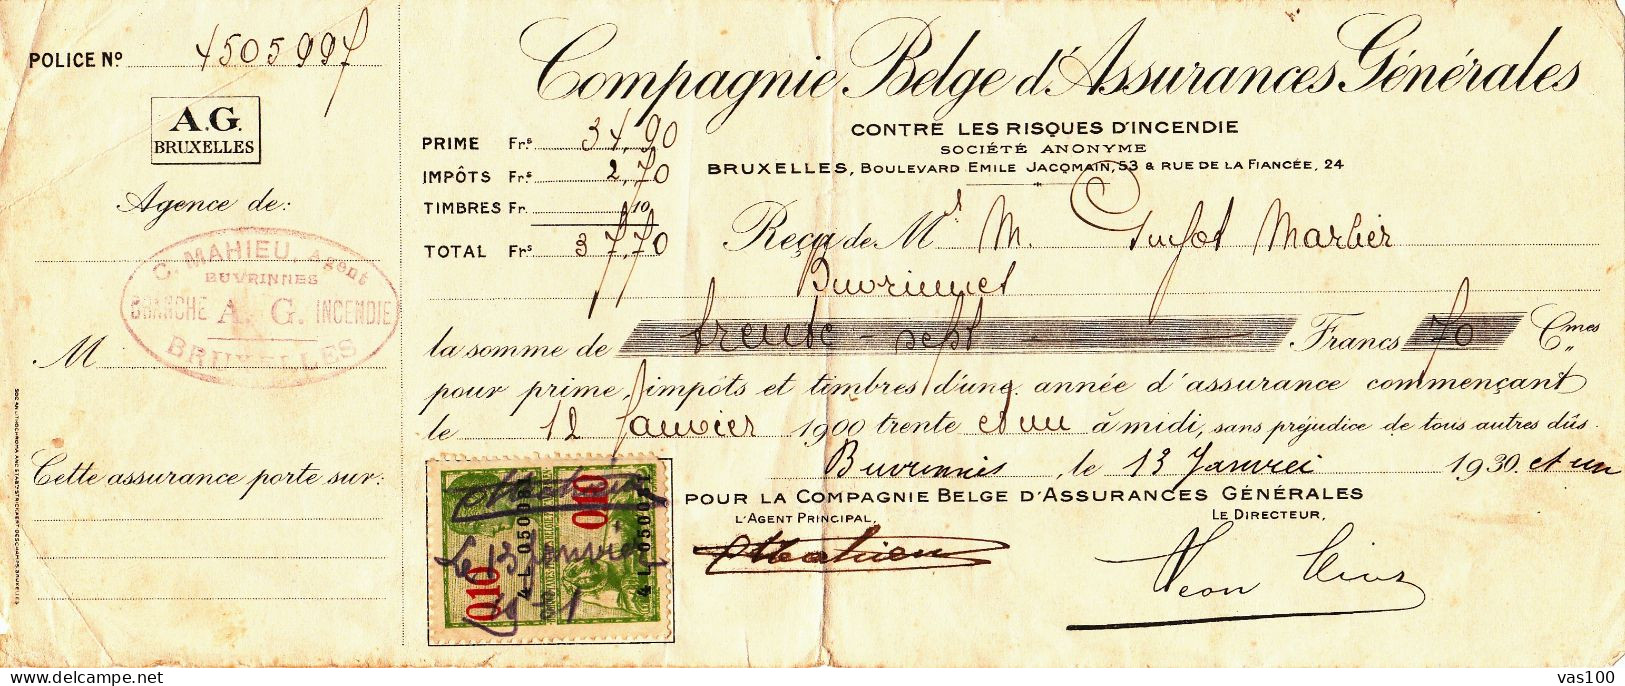 POLICE Nº 4505997
A.G.
BRUXELLES
Agence de:
C. MAHIEU, Agent
BUVRINNES
BRANCHE A. G. INCENDIE
BRUXELLES
M
Cette assurance porte sur:
Compagnie Belge d'Assurances Générales
CONTRE LES RISQUES D'INCENDIE
SOCIÉTÉ ANONYME
BRUXELLES, BOULEVARD EMILE JACQMAIN, 53 & RUE DE LA FIANCÉE, 24
PRIME Frs 34,90
IMPÔTS Frs 2,70
TIMBRES Fr. ,10
TOTAL Frs 37,70
Reçu de Mr M. Marlier
Buvrinnes
la somme de trente-sept Francs 70 Cmes
pour prime, impôts et timbres d'une année d'assurance commençant
le 12 Janvier 1900 trente et un à midi, sans préjudice de tous autres dûs.
Buvrinnes, le 13 Janvier 1930. et un
POUR LA COMPAGNIE BELGE D'ASSURANCES GÉNÉRALES
L'AGENT PRINCIPAL,
LE DIRECTEUR,
Mahieu
Léon
010
010
Mahieu
Le 13 Janvier
vas100